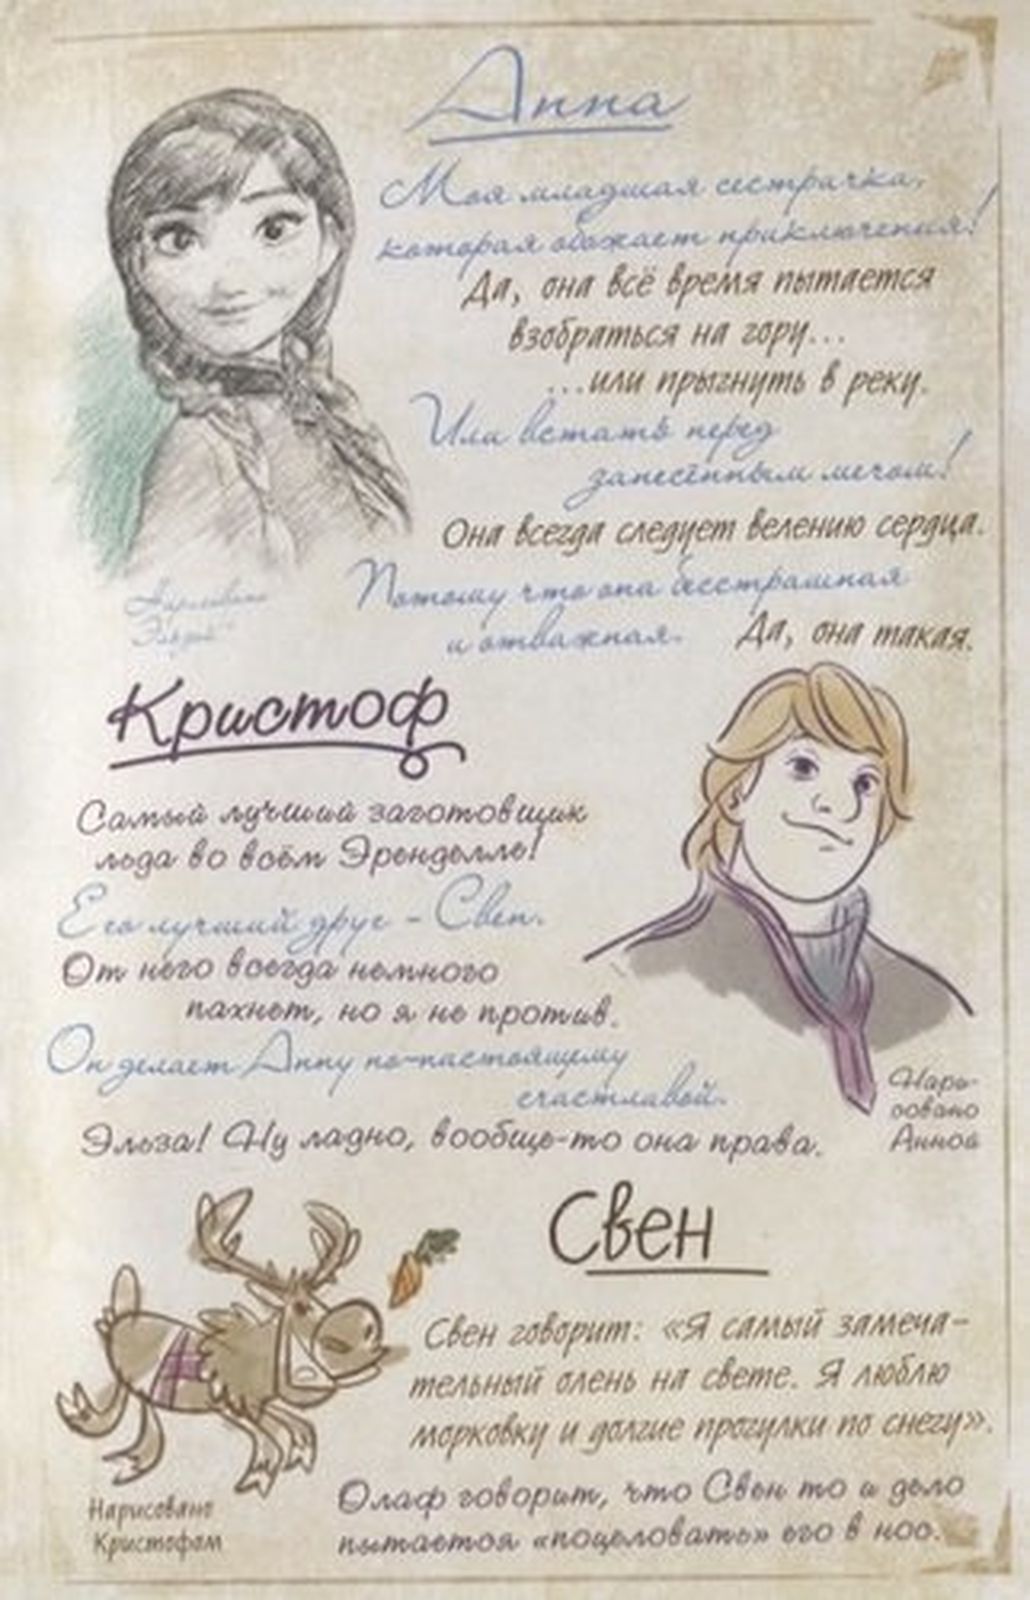 Анна
Моя младшая сестрачка,
которая обожает приключения!
Да, она всё время пытается
взобраться на гору...
...или прыгнуть в реку.
Или встать перед
занесённым мечом!
Она всегда следует велению сердца.
Потому что она бесстрашная
и отважная.
Да, она такая.
Нарисовано
Эльзой
Кристоф
Самый лучший заготовщик
льда во всём Эренделле!
Его лучший друг – Свен.
От него всегда немного
пахнет, но я не против.
Он делает Анну по-настоящему
счастливой.
Эльза! Ну ладно, вообще-то она права.
Нари-
совано
Анной
Свен
Свен говорит: «Я самый замеча-
тельный олень на свете. Я люблю
морковку и долгие прогулки по снегу».
Олаф говорит, что Свен то и дело
пытается «поцеловать» его в нос.
Нарисовано
Кристофом